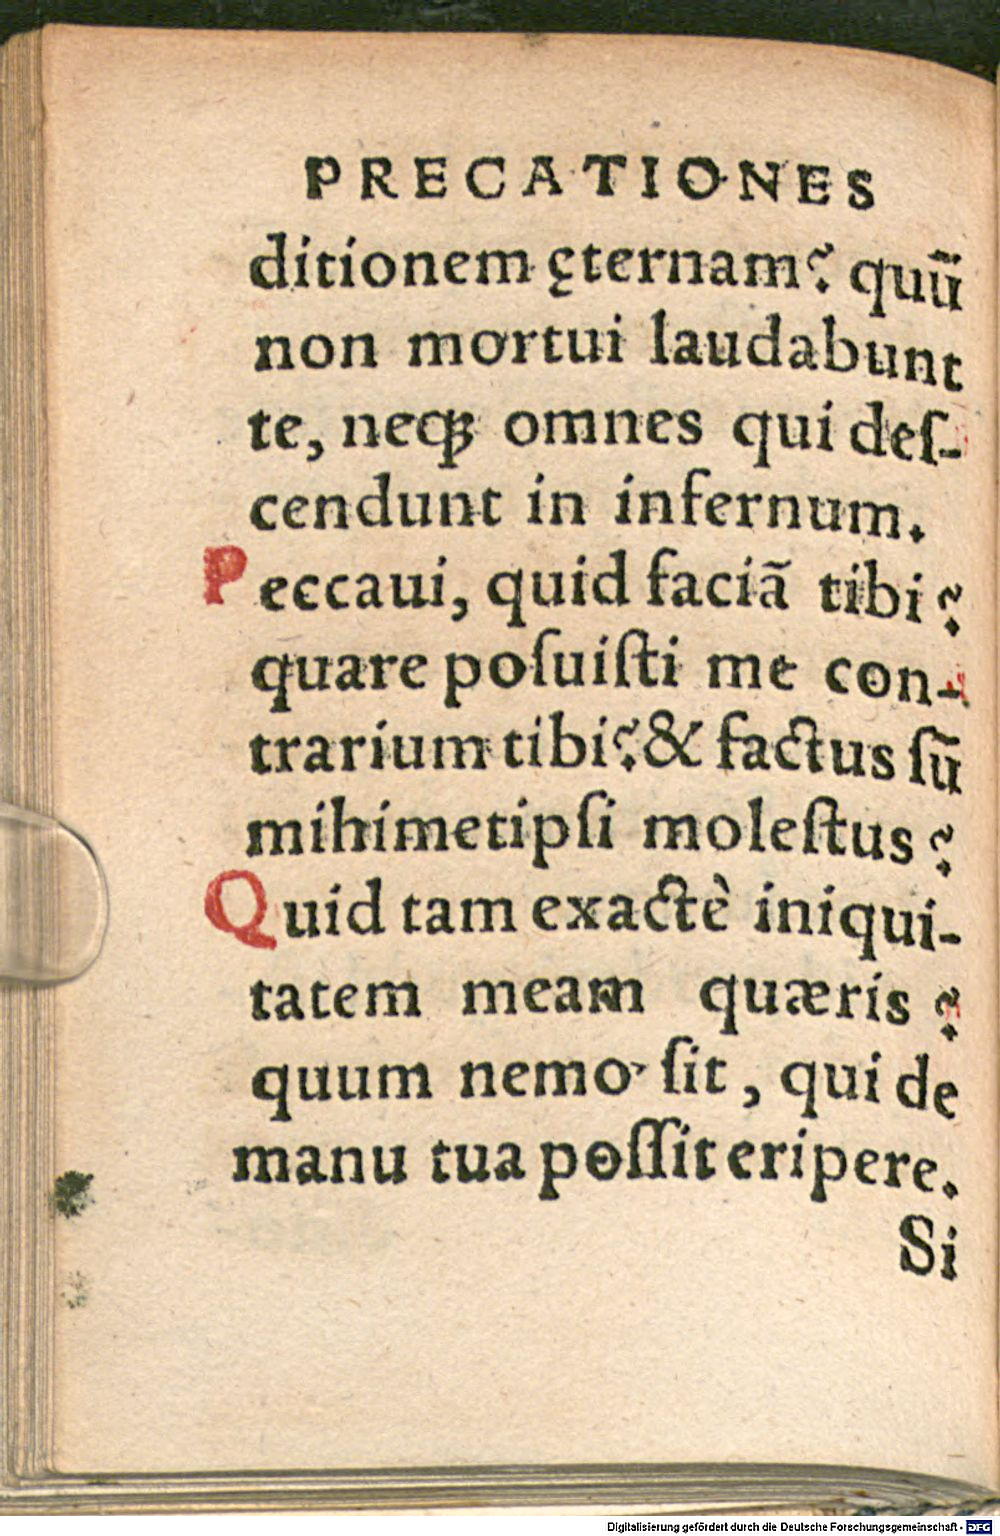 PRECATIONES
ditionem ęternam? quũ
non mortui laudabunt
te, neqꝫ omnes qui deſ-
cendunt in infernum.
Peccaui, quid faciã tibi?
quare poſuiſti me con-
trarium tibi? & factus ſũ
mihimetipſi moleſtus?
Quid tam exactè iniqui-
tatem meam quæris?
quum nemo ſit, qui de
manu tua poſſit eripere.
Si
Digitalisierung gefördert durch die Deutsche Forschungsgemeinschaft - DFG